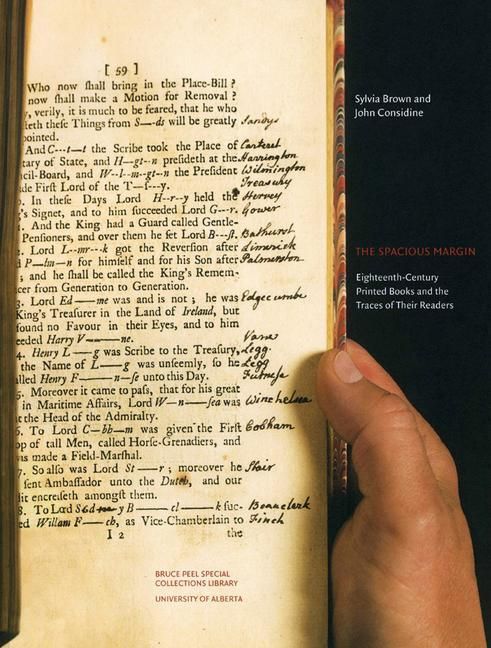 [ 59 ]
Who now ſhall bring in the Place-Bill ?
now ſhall make a Motion for Removal ?
, verily, it is much to be feared, that he who
ieth theſe Things from S---ds will be greatly Sandys
pointed.
And C---t---t the Scribe took the Place of Carteret
tary of State, and H--gt--n preſideth at the Harrington
cil-Board, and W--l--m--gt--n the Preſident Wilmington
de Firſt Lord of the T---ſ---y. Treasury
. In theſe Days Lord H--r--y held the Hervey
's Signet, and to him ſucceeded Lord G---r. Gower
. And the King had a Guard called Gentle-
Penſioners, and over them he ſet Lord B---ſt. Bathurst
. Lord L--mr---k got the Reverſion after Limerick
d P--lm--n for himſelf and for his Son after Palmerston
; and he ſhall be called the King's Remem-
cer from Generation to Generation.
3. Lord Ed——me was and is not ; he was Edgecumbe
King's Treaſurer in the Land of Ireland, but
found no Favour in their Eyes, and to him
eeded Harry V———ne. Vane
4. Henry L——g was Scribe to the Treaſury, Legg.
the Name of L——g was unſeemly, ſo he Legg
alled Henry F———n--ſe unto this Day. Furnese
5. Moreover it came to paſs, that for his great
in Maritime Affairs, Lord W--n---ſea was Winchelsea
t the Head of the Admiralty.
6. To Lord C--bh--m was given the Firſt Cobham
op of tall Men, called Horſe-Grenadiers, and
was made a Field-Marſhal.
7. So alſo was Lord St——r ; moreover he Stair
ſent Ambaſſador unto the Dutch, and our
dit encreſeth amongſt them.
8. To Lord Sydney B——cl——k ſuc- Beauclerk
ed Willam F——ch, as Vice-Chamberlain to Finch
I 2 the
Sylvia Brown and
John Considine
THE SPACIOUS MARGIN
Eighteenth-Century
Printed Books and the
Traces of Their Readers
BRUCE PEEL SPECIAL
COLLECTIONS LIBRARY
UNIVERSITY OF ALBERTA